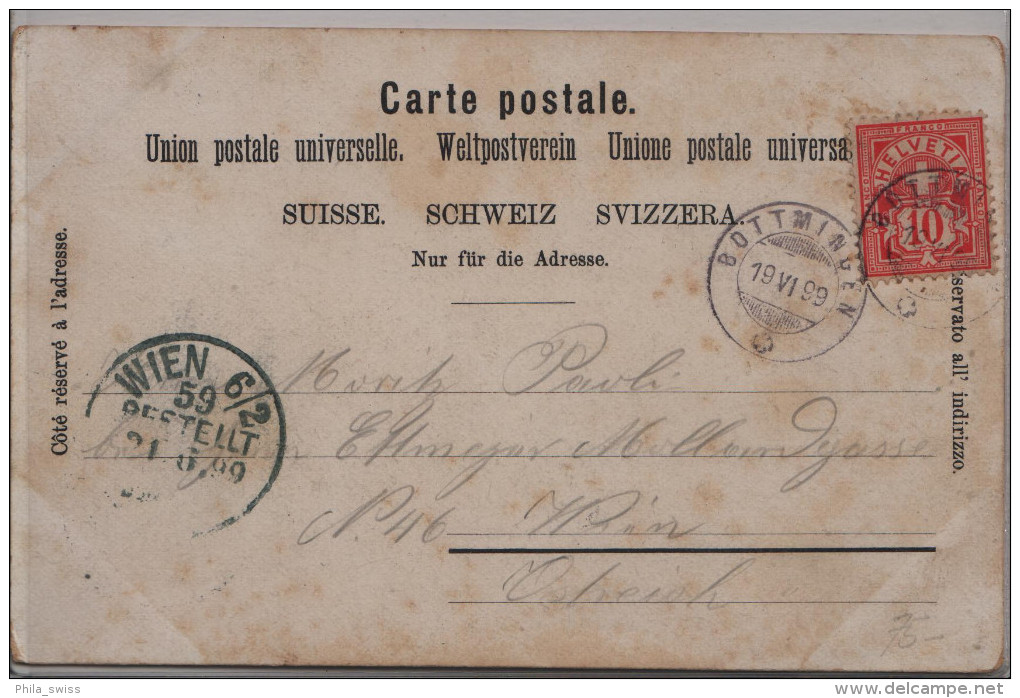 Carte postale.
Union postale universelle. Weltpostverein Unione postale universa
SUISSE. SCHWEIZ SVIZZERA.
Nur für die Adresse.
Côté réservé à l'adresse.
servato all' indirizzo.
FRANCO
HELVETIA
10
BOTTMINGEN
19 VI 99
WIEN 6/2
59
BESTELLT
21 6.99
Moritz Pauli
N. 46 Wien
Östreich
75-
Phila_swiss
delcampe.net